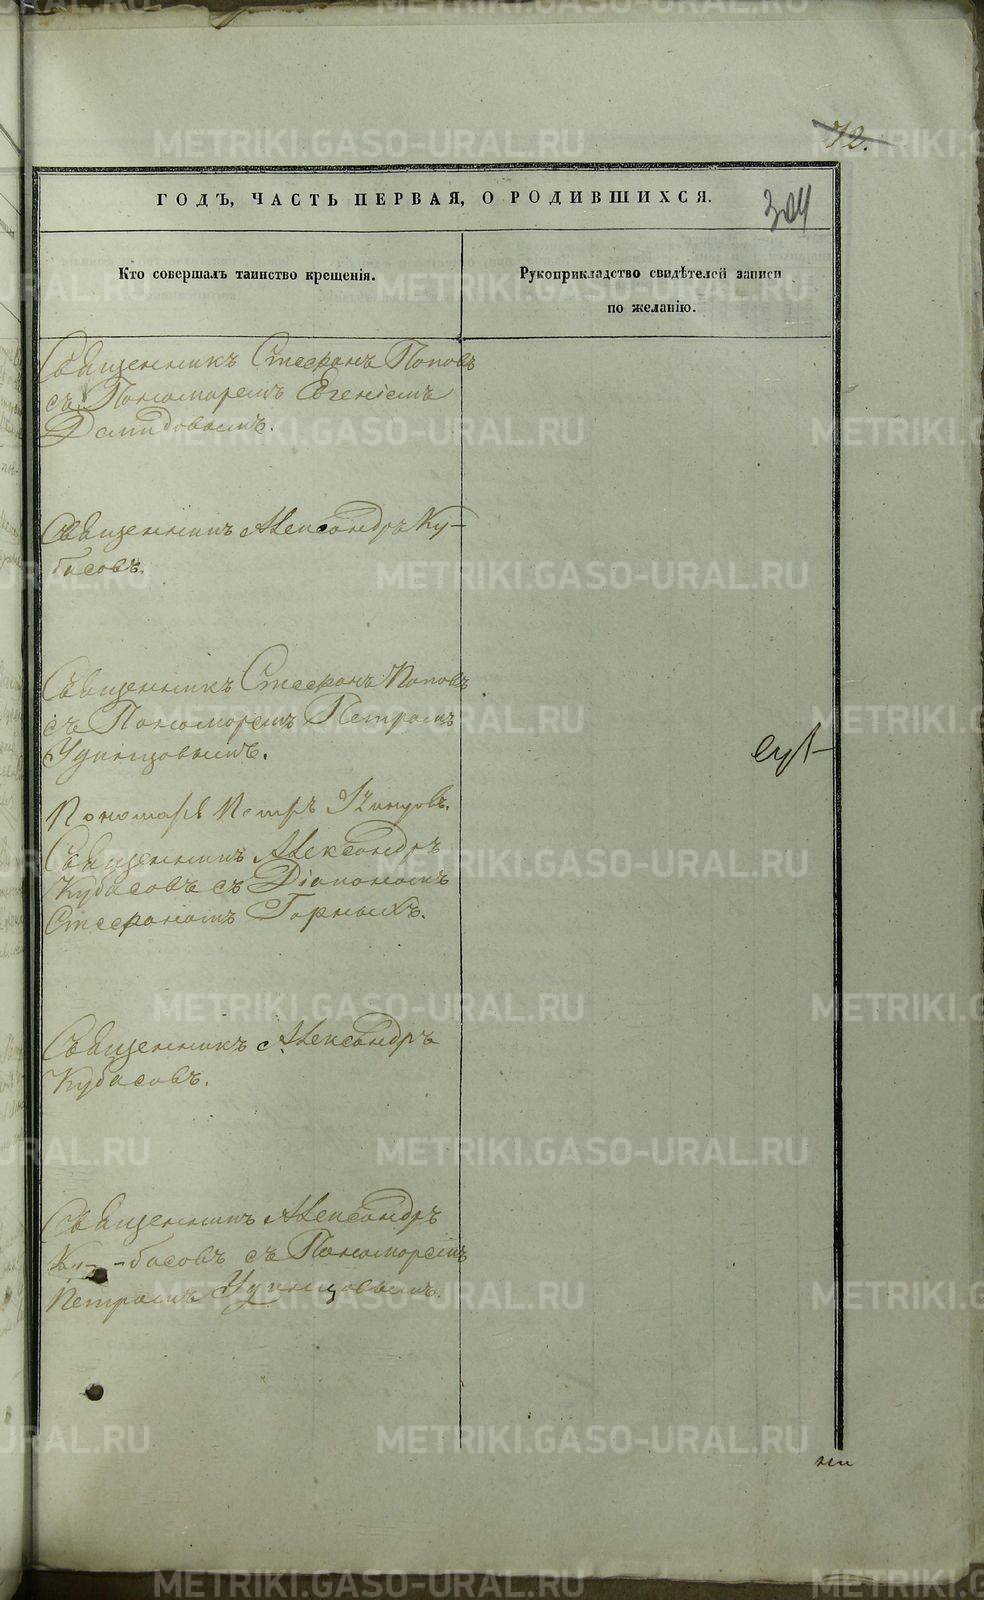 72.
ГОДЪ, ЧАСТЬ ПЕРВАЯ, О РОДИВШИХСЯ.
304
Кто совершалъ таинство крещенія.
Рукоприкладство свидѣтелей записи
по желанію.
Священникъ Стефанъ Поповъ
съ Пономаремъ Евгеніемъ
Демидовымъ.
Священникъ Александръ Ку-
басовъ.
Священникъ Стефанъ Поповъ
съ Пономаремъ Петромъ
Удинцовымъ.
Пономарь Петръ
Священникъ Александръ
Кубасовъ съ Діакономъ
Стефаномъ Горныхъ.
Священникъ Александръ
Кубасовъ.
Священникъ Александръ
Ку-басовъ съ Пономаремъ
Петромъ Удинцовымъ.
METRIKI.GASO-URAL.RU